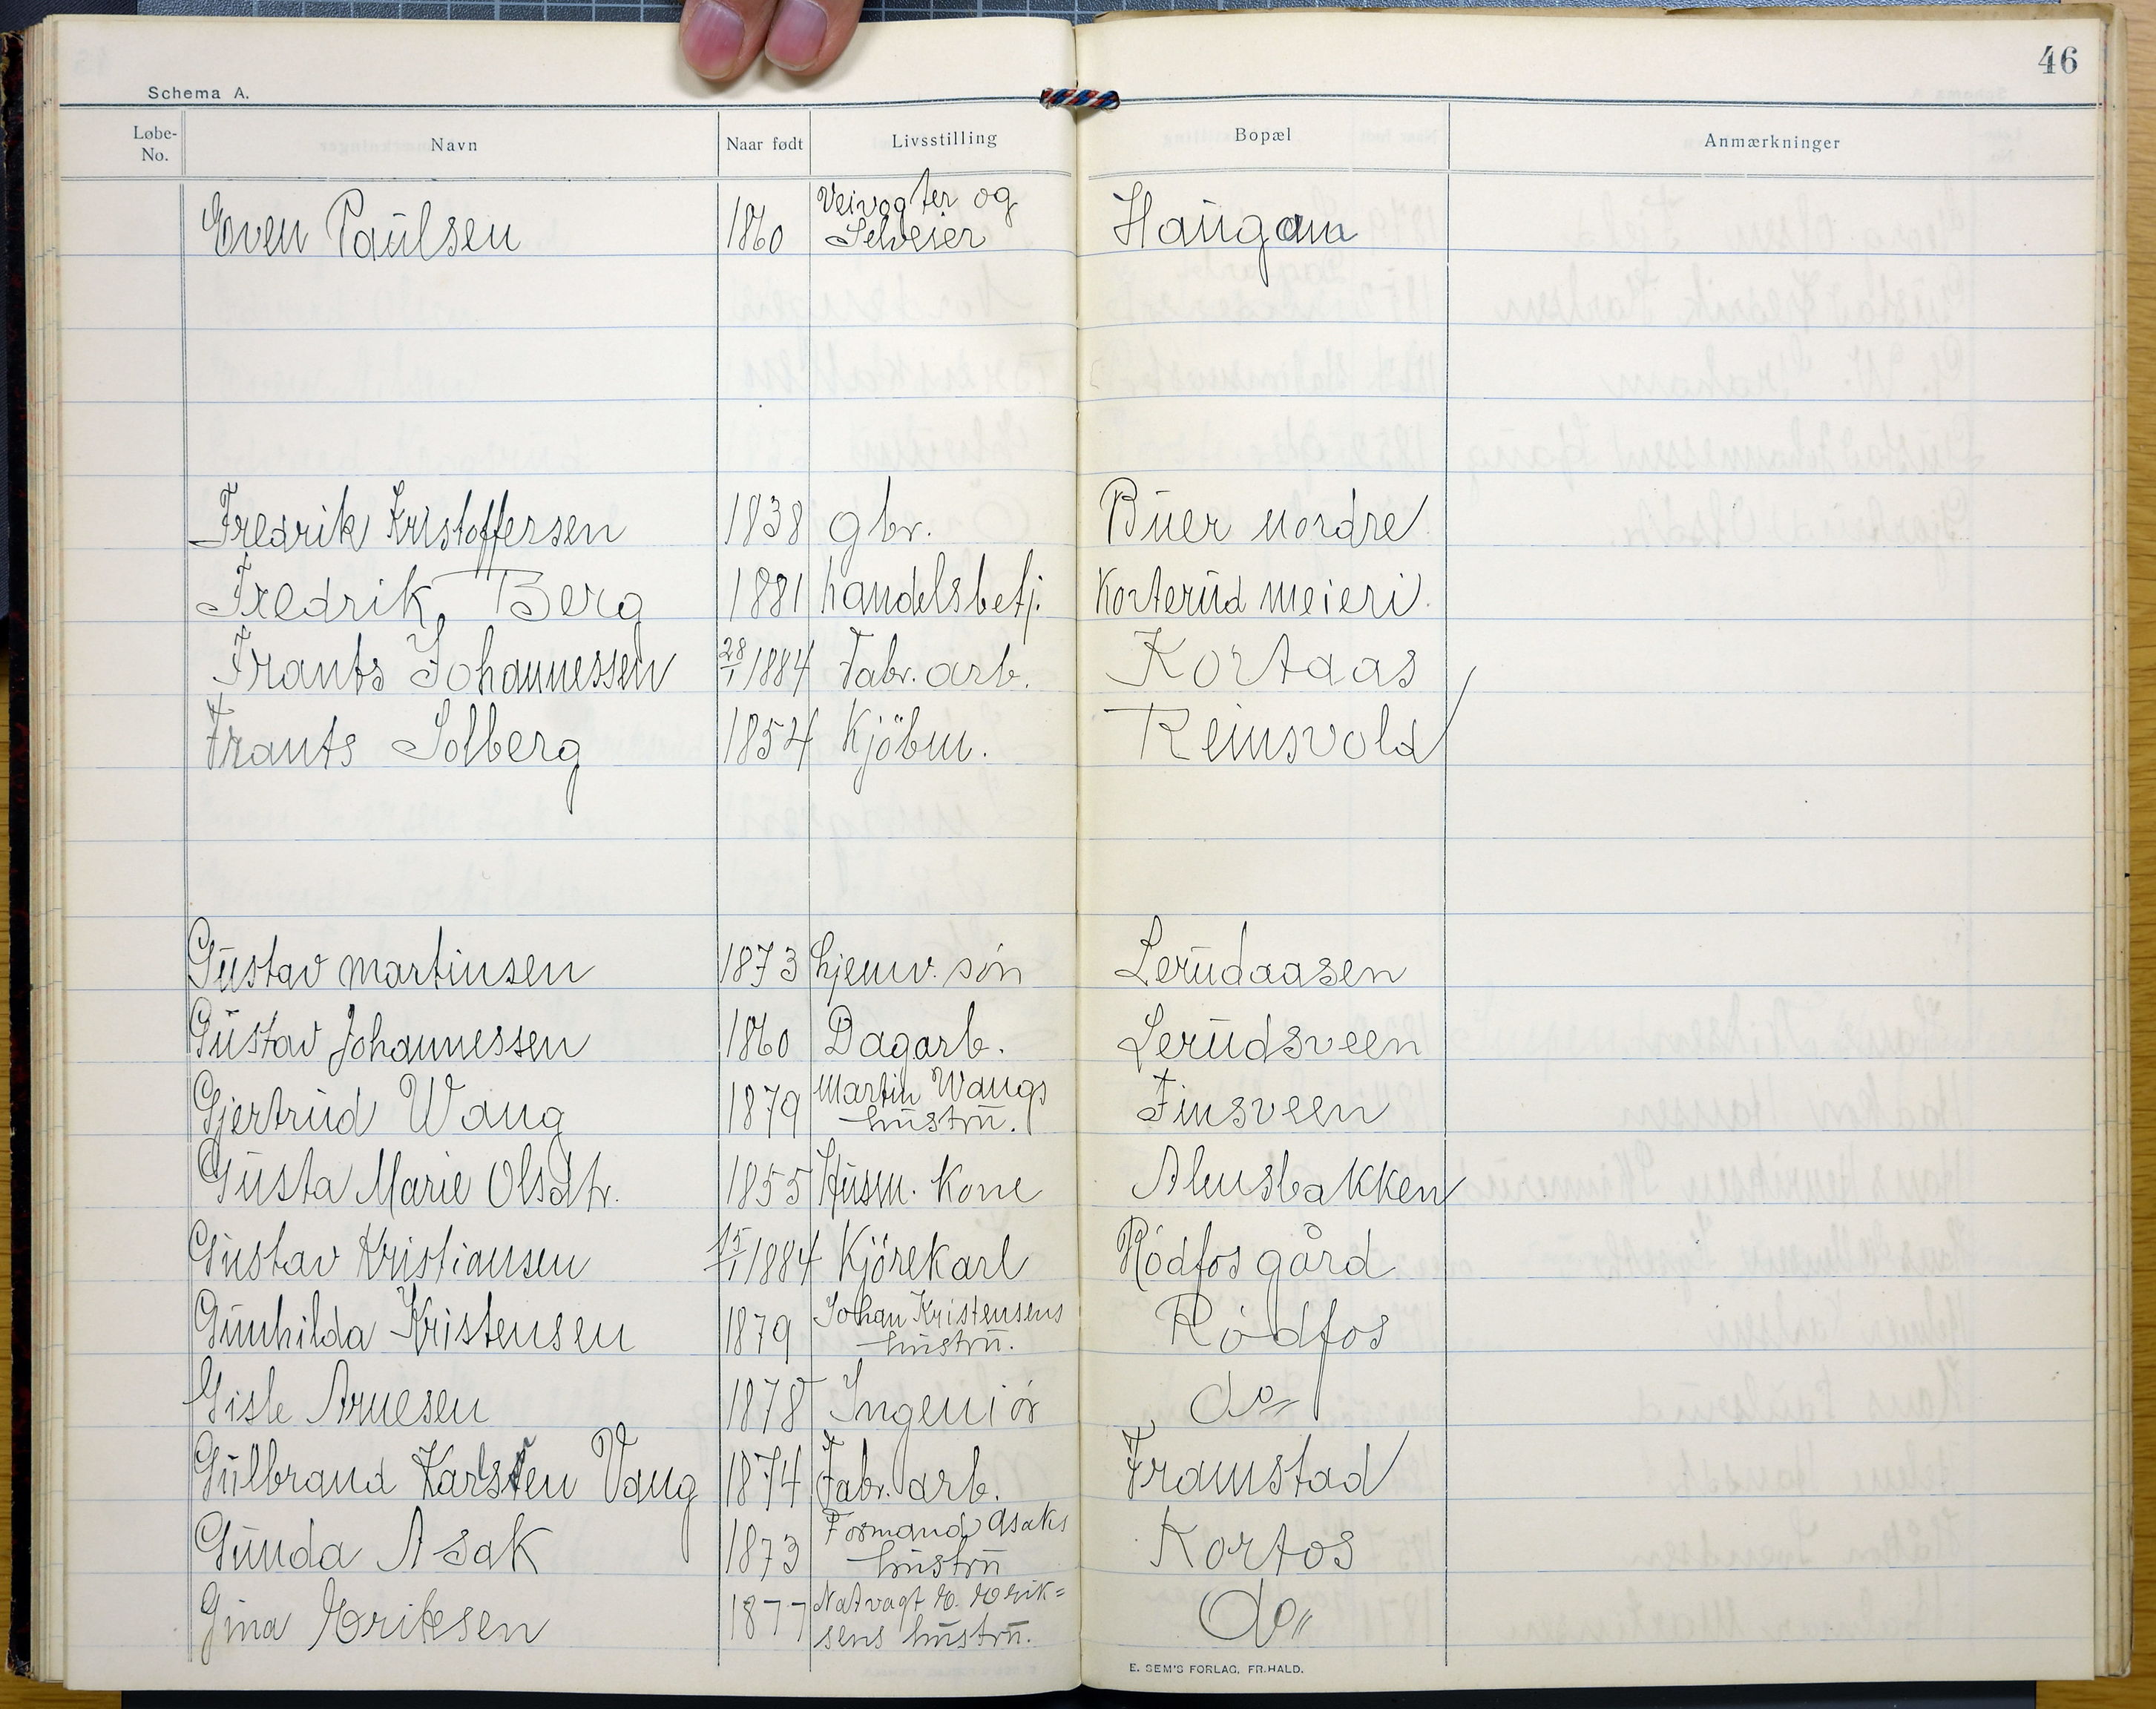 46
Schema A.
Løbe-No. Navn Naar født Livsstilling Bopæl Anmærkninger
Even Paulsen 1860 Veivogter og Selveier Haugom
Fredrik Kristoffersen 1838 gbr. Buer nordre
Fredrik Berg 1881 handelsbetj. Korterud meieri.
Frants Johannessen 28/1 1884 Fabr. arb. Kortaas
Frants Solberg 1854 Kjöbm. Reinsvold
Gustav Martinsen 1873 hjemv. søn Lerudaasen
Gustav Johannessen 1860 Dagarb. Lerudsveen
Gjertrud Wang 1879 Martin Wangs hustru. Finsveen
Gusta Marie Olsdtr. 1855 Husm. Kone Almsbakken
Gustav Kristiansen 15/1 1884 Kjörekarl Rödfos gård
Gunhilda Kristensen 1879 Johan Kristensens hustru. Rödfos
Gisle Arnesen 1878 Ingeniør do"
Gulbrand Karlsen Vang 1874 Fabr. arb. Framstad
Gunda Asak 1873 Formand Asaks hustru Kortos
Gina Eriksen 1877 Natvagt E. Erik=sens hustru. do"
E. SEM'S FORLAG, FR.HALD.